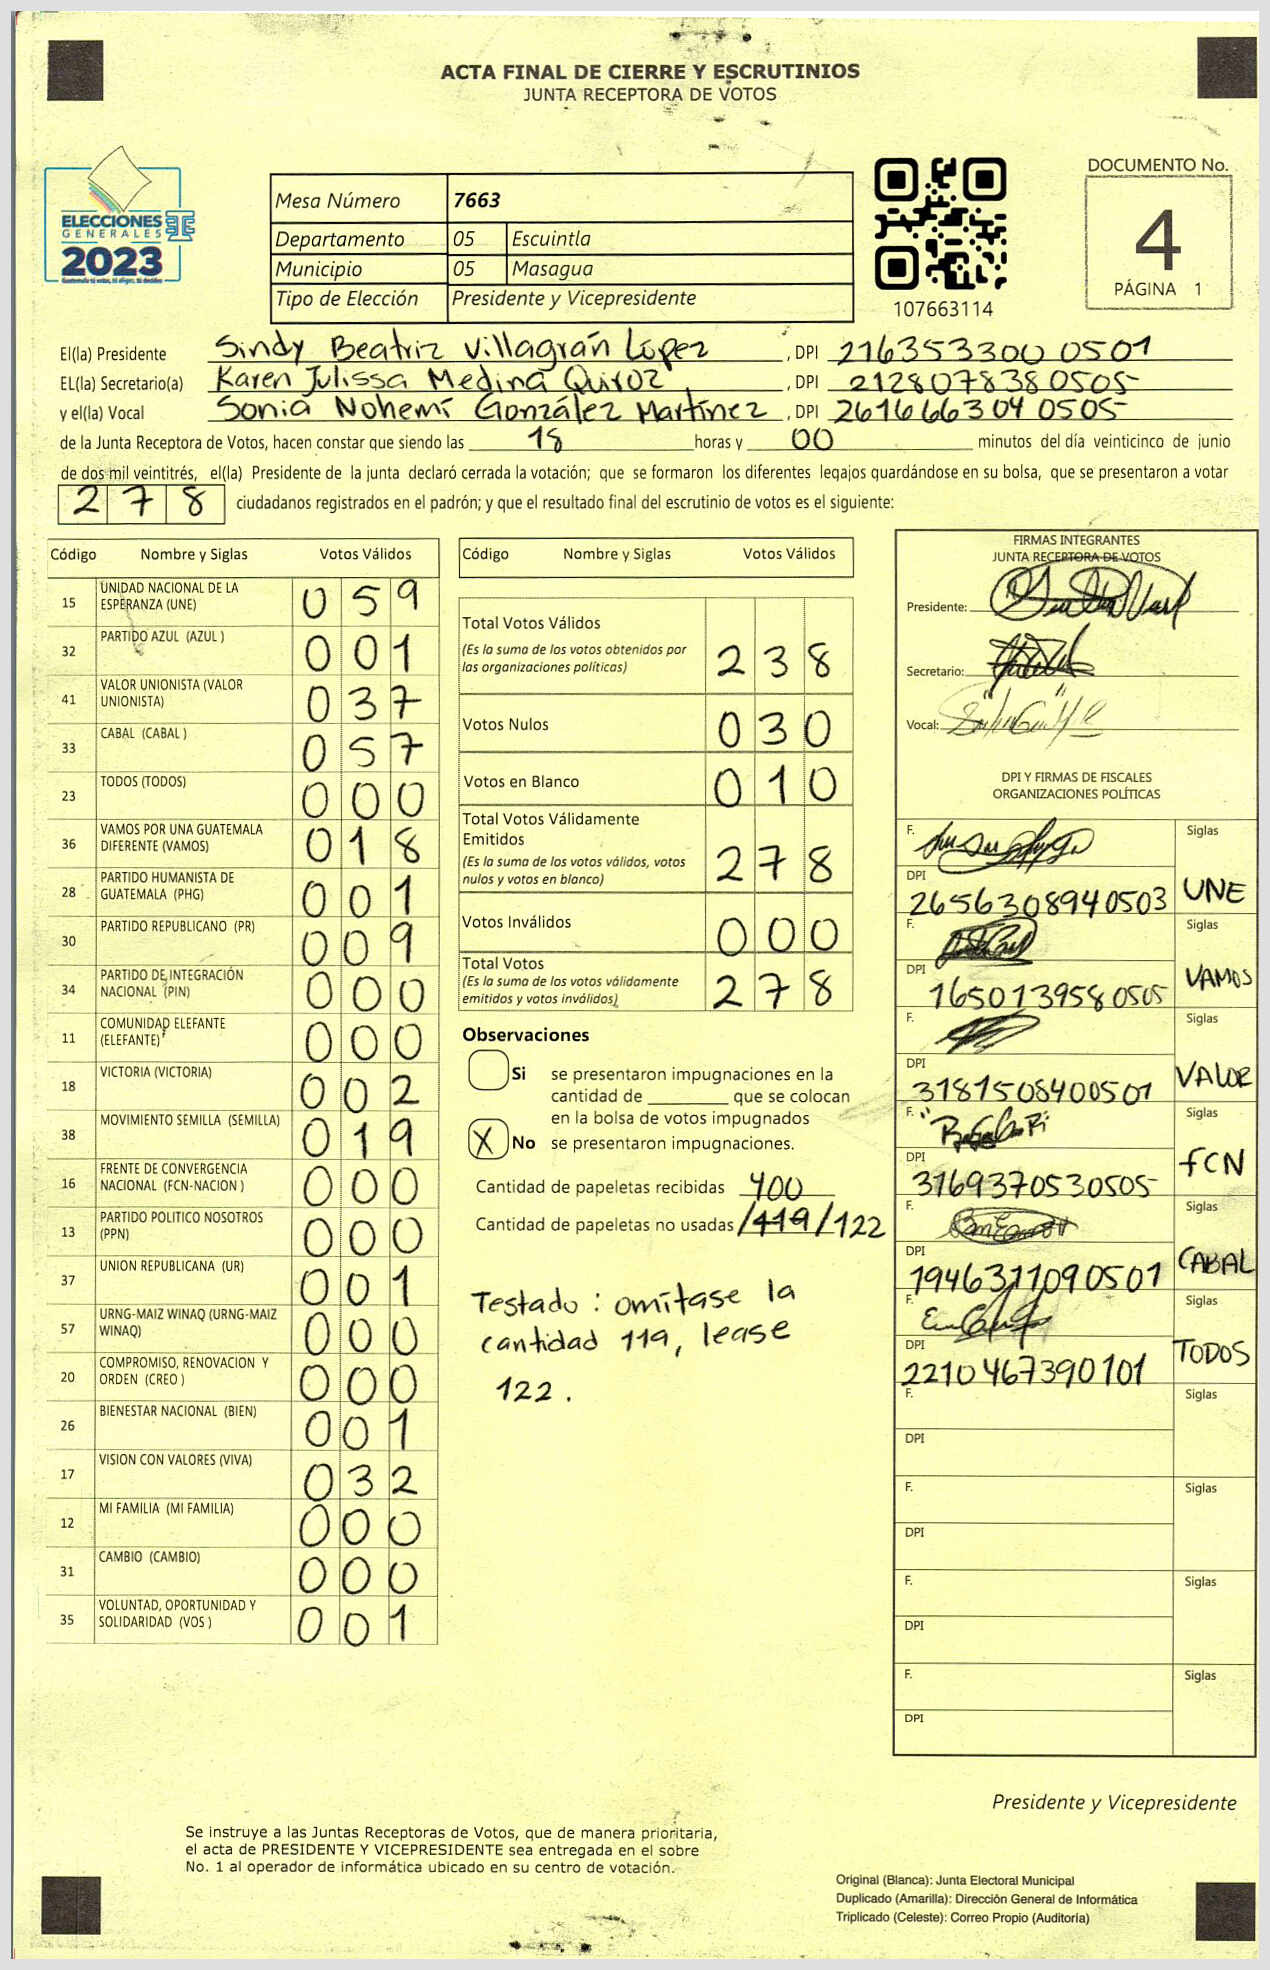 ACTA FINAL DE CIERRE Y ESCRUTINIOS
JUNTA RECEPTORA DE VOTOS
ELECCIONES
GENERALES
2023
Mesa Número 7663
Departamento 05 Escuintla
Municipio 05 Masagua
Tipo de Elección Presidente y Vicepresidente
107663114
DOCUMENTO No.
4
PÁGINA 1
El(la) Presidente Sindy Beatriz Villagrán López , DPI 216353300 0501
EL(la) Secretario(a) Karen Julissa Medina Quiroz , DPI 212807838 0505
y el(la) Vocal Sonia Nohemí González Martínez , DPI 261666304 0505
de la Junta Receptora de Votos, hacen constar que siendo las 18 horas y 00 minutos del día veinticinco de junio
de dos mil veintitrés, el(la) Presidente de la junta declaró cerrada la votación; que se formaron los diferentes legajos quardándose en su bolsa, que se presentaron a votar
278 ciudadanos registrados en el padrón; y que el resultado final del escrutinio de votos es el siguiente:
Código Nombre y Siglas Votos Válidos
15 UNIDAD NACIONAL DE LA ESPERANZA (UNE) 059
32 PARTIDO AZUL (AZUL ) 001
41 VALOR UNIONISTA (VALOR UNIONISTA) 037
33 CABAL (CABAL ) 057
23 TODOS (TODOS) 000
36 VAMOS POR UNA GUATEMALA DIFERENTE (VAMOS) 018
28 PARTIDO HUMANISTA DE GUATEMALA (PHG) 001
30 PARTIDO REPUBLICANO (PR) 009
34 PARTIDO DE INTEGRACIÓN NACIONAL (PIN) 000
11 COMUNIDAD ELEFANTE (ELEFANTE) 000
18 VICTORIA (VICTORIA) 002
38 MOVIMIENTO SEMILLA (SEMILLA) 019
16 FRENTE DE CONVERGENCIA NACIONAL (FCN-NACION ) 000
13 PARTIDO POLITICO NOSOTROS (PPN) 000
37 UNION REPUBLICANA (UR) 001
57 URNG-MAIZ WINAQ (URNG-MAIZ WINAQ) 000
20 COMPROMISO, RENOVACION Y ORDEN (CREO ) 000
26 BIENESTAR NACIONAL (BIEN) 001
17 VISION CON VALORES (VIVA) 032
12 MI FAMILIA (MI FAMILIA) 000
31 CAMBIO (CAMBIO) 000
35 VOLUNTAD, OPORTUNIDAD Y SOLIDARIDAD (VOS ) 001
Código Nombre y Siglas Votos Válidos
Total Votos Válidos 238
(Es la suma de los votos obtenidos por
las organizaciones políticas)
Votos Nulos 030
Votos en Blanco 010
Total Votos Válidamente
Emitidos 278
(Es la suma de los votos válidos, votos
nulos y votos en blanco)
Votos Inválidos 000
Total Votos 278
(Es la suma de los votos válidamente
emitidos y votos inválidos)
Observaciones
Si se presentaron impugnaciones en la
cantidad de ________ que se colocan
en la bolsa de votos impugnados
X No se presentaron impugnaciones.
Cantidad de papeletas recibidas 400
Cantidad de papeletas no usadas /119/122
Testado : omítase la
cantidad 119, lease
122 .
FIRMAS INTEGRANTES
JUNTA RECEPTORA DE VOTOS
Presidente:
Secretario:
Vocal:
DPI Y FIRMAS DE FISCALES
ORGANIZACIONES POLÍTICAS
F. Siglas
DPI 2656308940503 UNE
F. Siglas
DPI 1650139580505 VAMOS
F. Siglas
DPI 3181508400501 VALOR
F. Siglas
DPI 3169370530505 FCN
F. Siglas
DPI 1946311090501 CABAL
F. Siglas
DPI 2210467390101 TODOS
F. Siglas
DPI
F. Siglas
DPI
F. Siglas
DPI
F. Siglas
DPI
Presidente y Vicepresidente
Se instruye a las Juntas Receptoras de Votos, que de manera prioritaria,
el acta de PRESIDENTE Y VICEPRESIDENTE sea entregada en el sobre
No. 1 al operador de informática ubicado en su centro de votación.
Original (Blanca): Junta Electoral Municipal
Duplicado (Amarilla): Dirección General de Informática
Triplicado (Celeste): Correo Propio (Auditoría)